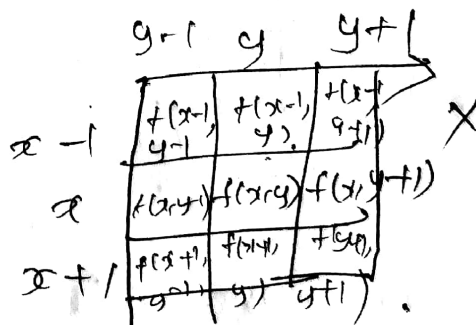 y-1 y y+1
x-1 f(x-1, y-1 f(x-1, y) f(x-1 y+1)
x f(x,y-1) f(x,y) f(x,y+1)
x+1 f(x+1, y-1), f(x+1, y) y+1)
X